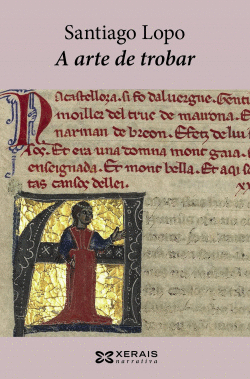 Santiago Lopo
A arte de trobar
Na castelloza. si fo daluergne. Gent
moiller del truc de mairona. E
narman de breon. E fetz de lui
ços. Et era una domna mout gaia.
enseignada. Et mout bella. Et aqi
tas cansos deller.
XERAIS
narrativa